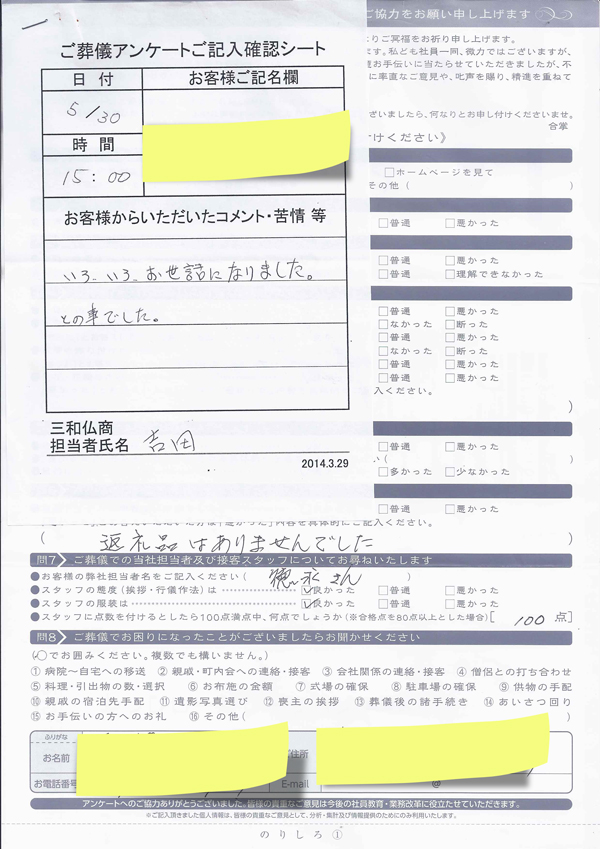 ご協力をお願い申し上げます
りご冥福をお祈り申し上げます。
ます。私ども社員一同、微力ではございますが、
お手伝いに当たらせていただきましたが、不
に率直なご意見や、叱声を賜り、精進を重ねて
ざいましたら、何なりとお申し付けくださいませ。
合掌
付けください》
ご葬儀アンケートご記入確認シート
日付
お客様ご記名欄
5/30
時間
15:00
お客様からいただいたコメント・苦情 等
いろ、いろ、お世話になりました。
との事でした。
三和仏商
担当者氏名 吉田
2014.3.29
□ホームページを見て
その他( )
□普通 □悪かった
□普通 □悪かった
□普通 □理解できなかった
□普通 □悪かった
□なかった □断った
□普通 □悪かった
□なかった □断った
□普通 □悪かった
□普通 □悪かった
入ください。
)
□普通 □悪かった
い( )
□多かった □少なかった
□普通 □悪かった
内容を具体的にご記入ください。
( 返礼品はありませんでした )
問7 ご葬儀での当社担当者及び接客スタッフについてお尋ねいたします
●お客様の弊社担当者名をご記入ください( 徳永さん )
●スタッフの態度(挨拶・行儀作法)は ☑良かった □普通 □悪かった
●スタッフの服装は ☑良かった □普通 □悪かった
●スタッフに点数を付けるとしたら100点満点中、何点でしょうか(※合格点を80点以上とした場合)[ 100 点]
問8 ご葬儀でお困りになったことがございましたらお聞かせください
(○でお囲みください。複数でも構いません。)
①病院〜自宅への移送 ②親戚・町内会への連絡・接客 ③会社関係の連絡・接客 ④僧侶との打ち合わせ
⑤料理・引出物の数・選択 ⑥お布施の金額 ⑦式場の確保 ⑧駐車場の確保 ⑨供物の手配
⑩親戚の宿泊先手配 ⑪遺影写真選び ⑫喪主の挨拶 ⑬葬儀後の諸手続き ⑭あいさつ回り
⑮お手伝いの方へのお礼 ⑯その他( )
ふりがな
お名前
ご住所
お電話番号
E-mail @
アンケートへのご協力ありがとうございました。皆様の貴重なご意見は今後の社員教育・業務改革に役立たせていただきます。
※ご記入頂きました個人情報は、皆様の貴重なご意見として、分析・集計及び情報提供のためにのみ利用いたします。
のりしろ①